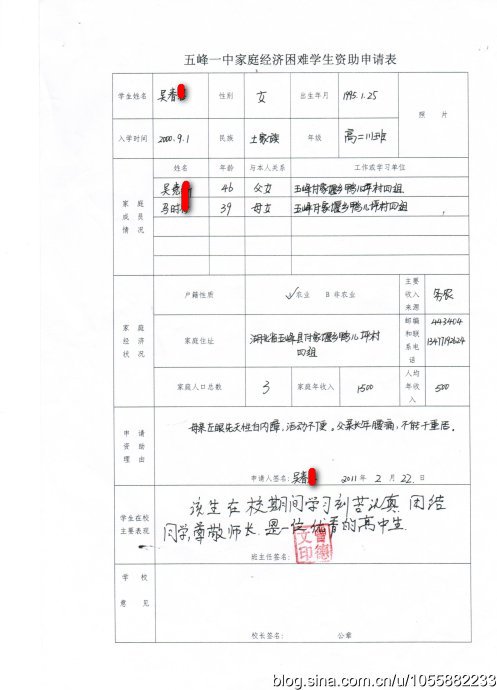 五峰一中家庭经济困难学生资助申请表
学生姓名 吴春 性别 女 出生年月 1995.1.25 照 片
入学时间 2000.9.1 民族 土家族 年级 高二川班
家庭成员情况 姓名 年龄 与本人关系 工作或学习单位
吴 46 父女 五峰付家堰乡鸭儿坪村四组
马 39 母女 五峰付家堰乡鸭儿坪村四组
家庭经济状况 户籍性质 √A农业 B 非农业 主要收入来源 务农
家庭住址 湖北省五峰县付家堰乡鸭儿坪村四组 邮编和联系电话 443404
家庭人口总数 3 家庭年收入 1500 人均年收入 500
申请资助理由 母亲左眼先天性白内障,活动不便。父亲长年腰痛,不能干重活。
申请人签名: 吴春 2011年 2 月 22 日
学生在校主要表现 该生在校期间学习刻苦认真 团结
同学,尊敬师长.是一位优秀的高中生.
班主任签名:
学 校 意 见
校长签名: 公章
blog.sina.com.cn/u/1055882233